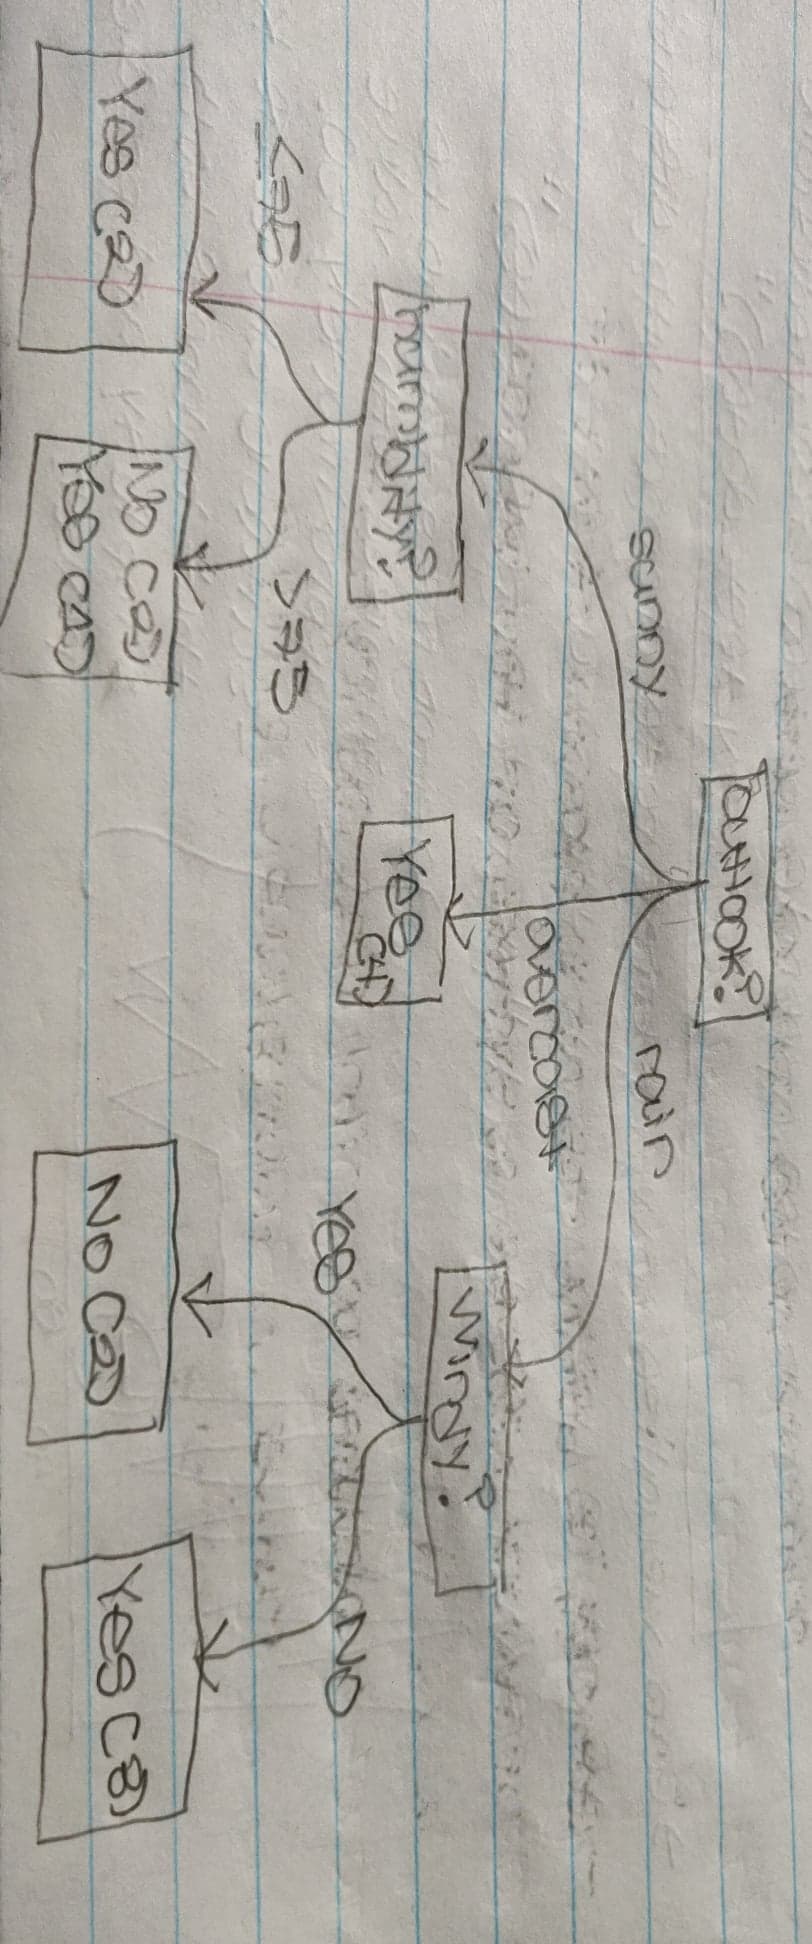 Outlook?
sunny
rain
overcast
humidity?
Yes
(4)
Windy?
≤75
>75
Yes
NO
Yes (2)
NO (2)
Yes (1)
No (2)
Yes (3)